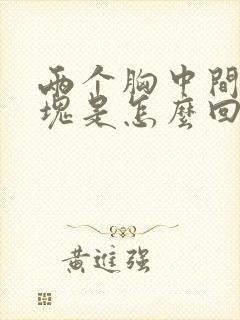 两个胸中間
塊是怎麼回
黃進强